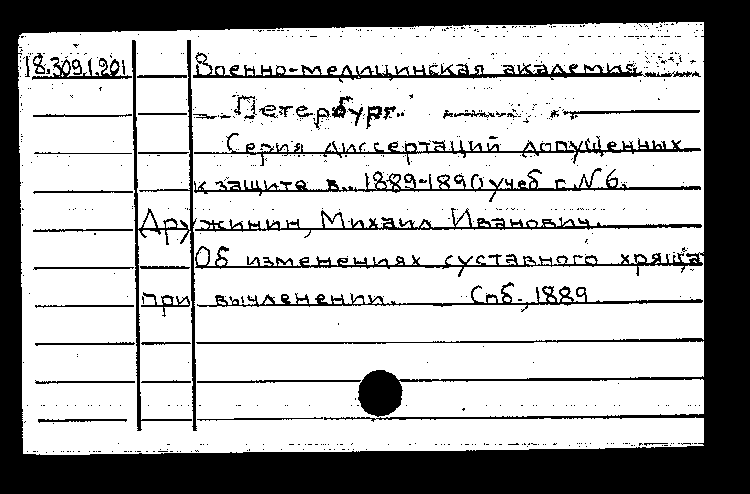 18.309.1.201 Военно-медицинская академия
Петербург.
Серия диссертаций допущенных
к защите в.. 1889-1890 учеб г. N 6.
Дружинин, Михаил Иванович.
Об изменениях суставного хряща
при вычленении. Спб., 1889